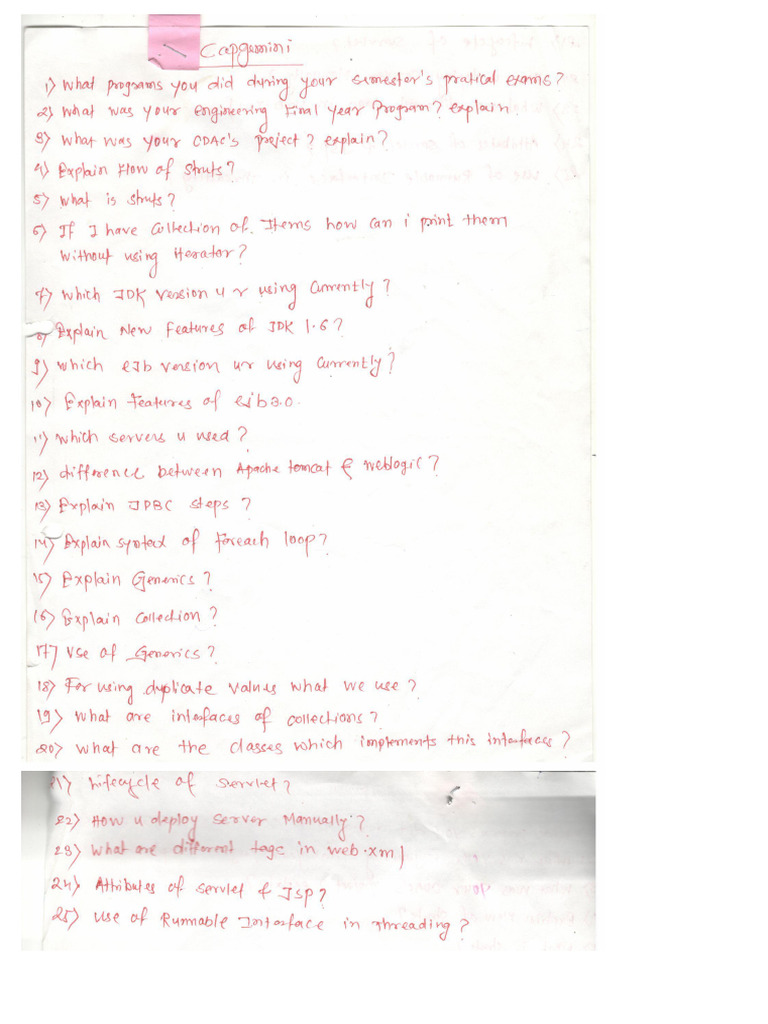 Capgemini
1) What programs you did during your semester's pratical exams?
2) What was your engineering Final year Program? explain.
3) What was your CDAC's project? explain?
4) Explain Flow of Struts?
5) What is struts?
6) If I have Collection of Items how can i print them
without using Iterator?
7) Which JDK version u r using Currently?
8) Explain New Features of JDK 1.6?
9) which EJb version ur using Currently?
10) Explain Features of ejb3.0.
11) which servers u used?
12) difference between Apache tomcat & weblogic?
13) Explain JDBC steps?
14) Explain syntax of Foreach loop?
15) Explain Generics?
16) Explain Collection?
17) Use of Generics?
18) For using duplicate values what we use?
19) What are interfaces of collections?
20) What are the classes which implements this interfaces?
21) Lifecycle of Servlet?
22) How u deploy server Manually?
23) What are different tags in web.xml
24) Attributes of servlet & Jsp?
25) Use of Runnable Interface in threading?